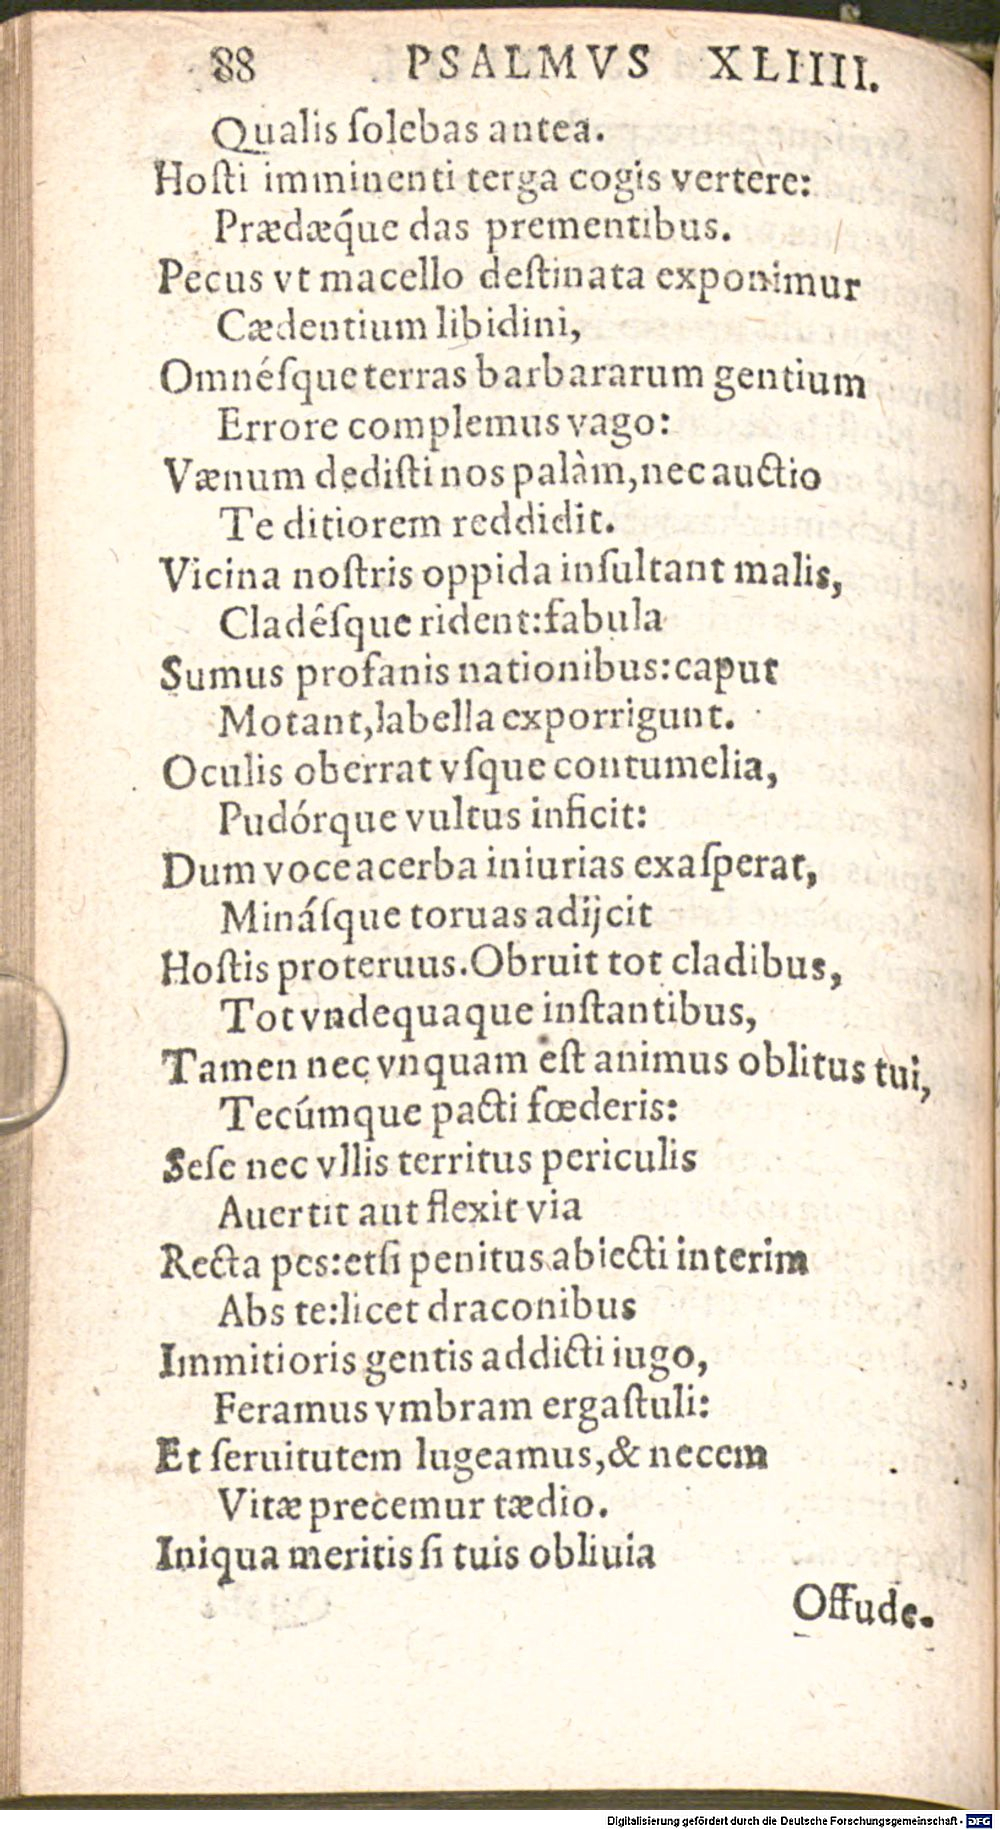 88 PSALMVS XLIIII.
Qualis ſolebas antea.
Hoſti imminenti terga cogis vertere:
Prædæq́ue das prementibus.
Pecus vt macello deſtinata exponimur
Cædentium libidini,
Omnéſque terras barbararum gentium
Errore complemus vago:
Vænum dediſti nos palàm, nec auctio
Te ditiorem reddidit.
Vicina noſtris oppida inſultant malis,
Cladéſque rident: fabula
Sumus profanis nationibus: caput
Motant, labella exporrigunt.
Oculis oberrat vſque contumelia,
Pudórque vultus inficit:
Dum voce acerba iniurias exaſperat,
Mináſque toruas adijcit
Hoſtis proteruus. Obruit tot cladibus,
Tot vndequaque inſtantibus,
Tamen nec vnquam eſt animus oblitus tui,
Tecúmque pacti fœderis:
Seſe nec vllis territus periculis
Auertit aut flexit via
Recta pes: etſi penitus abiecti interim
Abs te: licet draconibus
Immitioris gentis addicti iugo,
Feramus vmbram ergaſtuli:
Et ſeruitutem lugeamus, & necem
Vitæ precemur tædio.
Iniqua meritis ſi tuis obliuia
Offude.
Digitalisierung gefördert durch die Deutsche Forschungsgemeinschaft - DFG